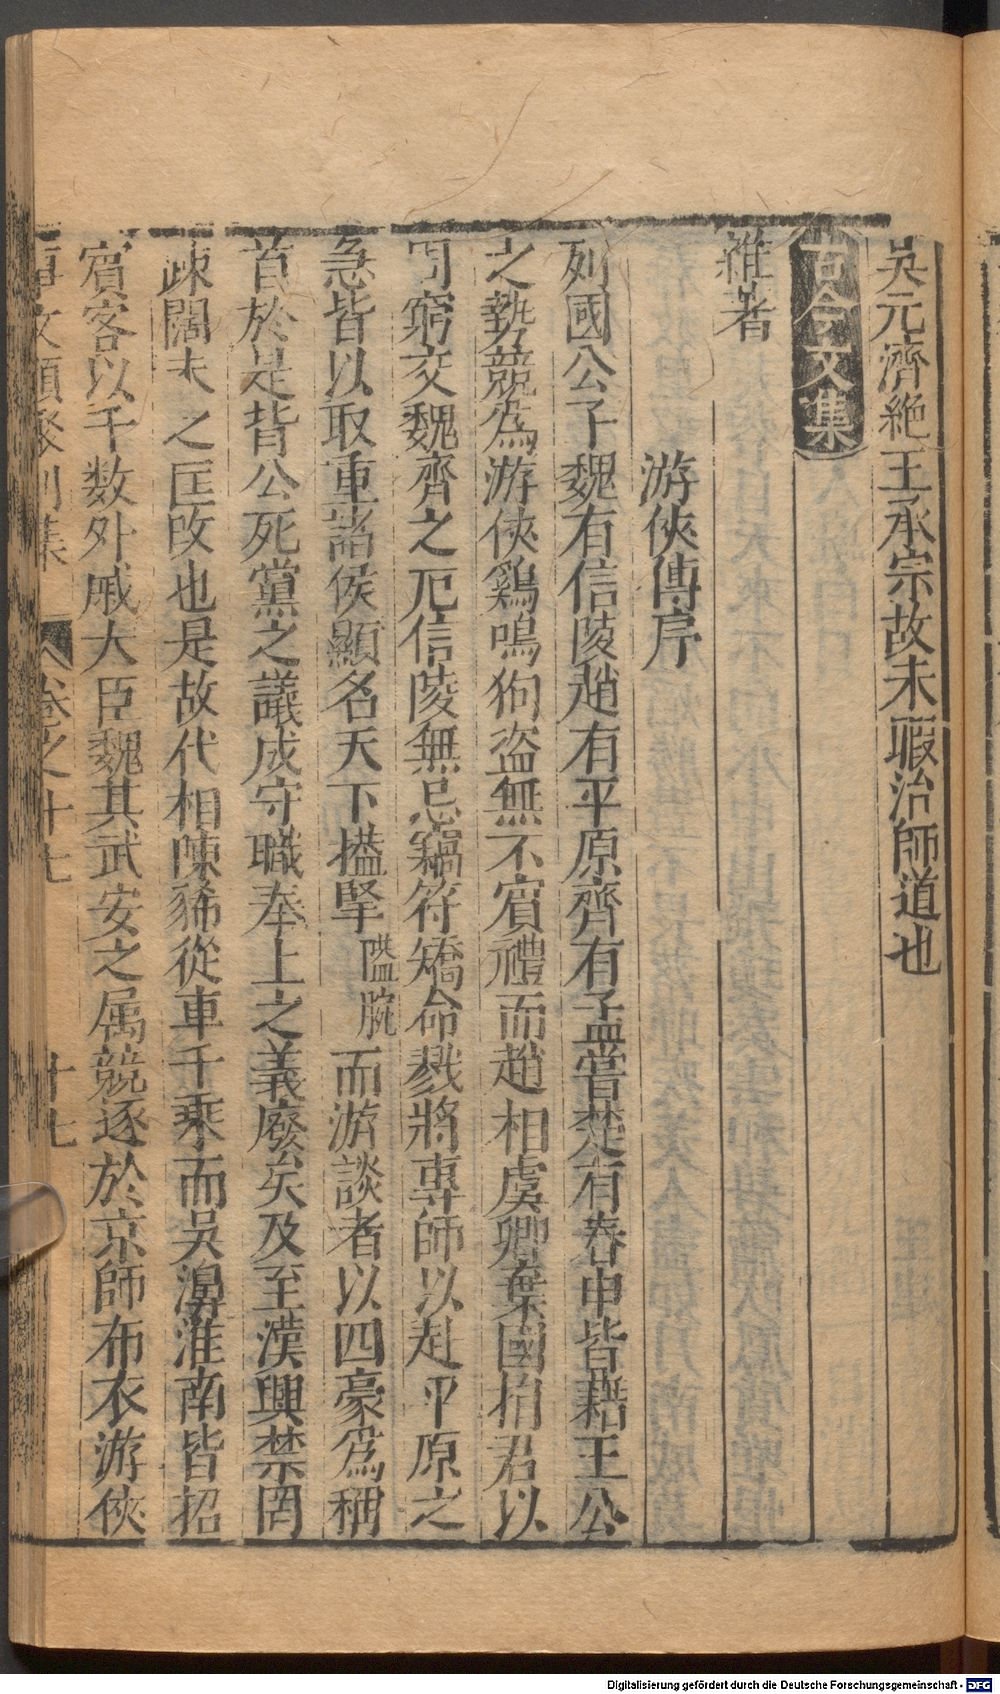 吳元濟絶王承宗故未暇治師道也
古今文集
雜著
游俠傳序
列國公子魏有信陵趙有平原齊有孟嘗楚有春申皆藉王公
之勢競爲游俠鷄鳴狗盜無不賓禮而趙相虞卿棄國捐君以
周窮交魏齊之厄信陵無忌竊符矯命戮將專師以赴平原之
急皆以取重諸侯顯名天下搤掔
嗌腕
而游談者以四豪爲稱
首於是背公死黨之議成守職奉上之義廢矣及至漢興禁罔
疎闊未之匡改也是故代相陳豨從車千乘而吳濞淮南皆招
賓客以千数外戚大臣魏其武安之属競逐於京師布衣游俠
事文類聚別集
卷之十七
十七
Digitalisierung gefördert durch die Deutsche Forschungsgemeinschaft - DFG